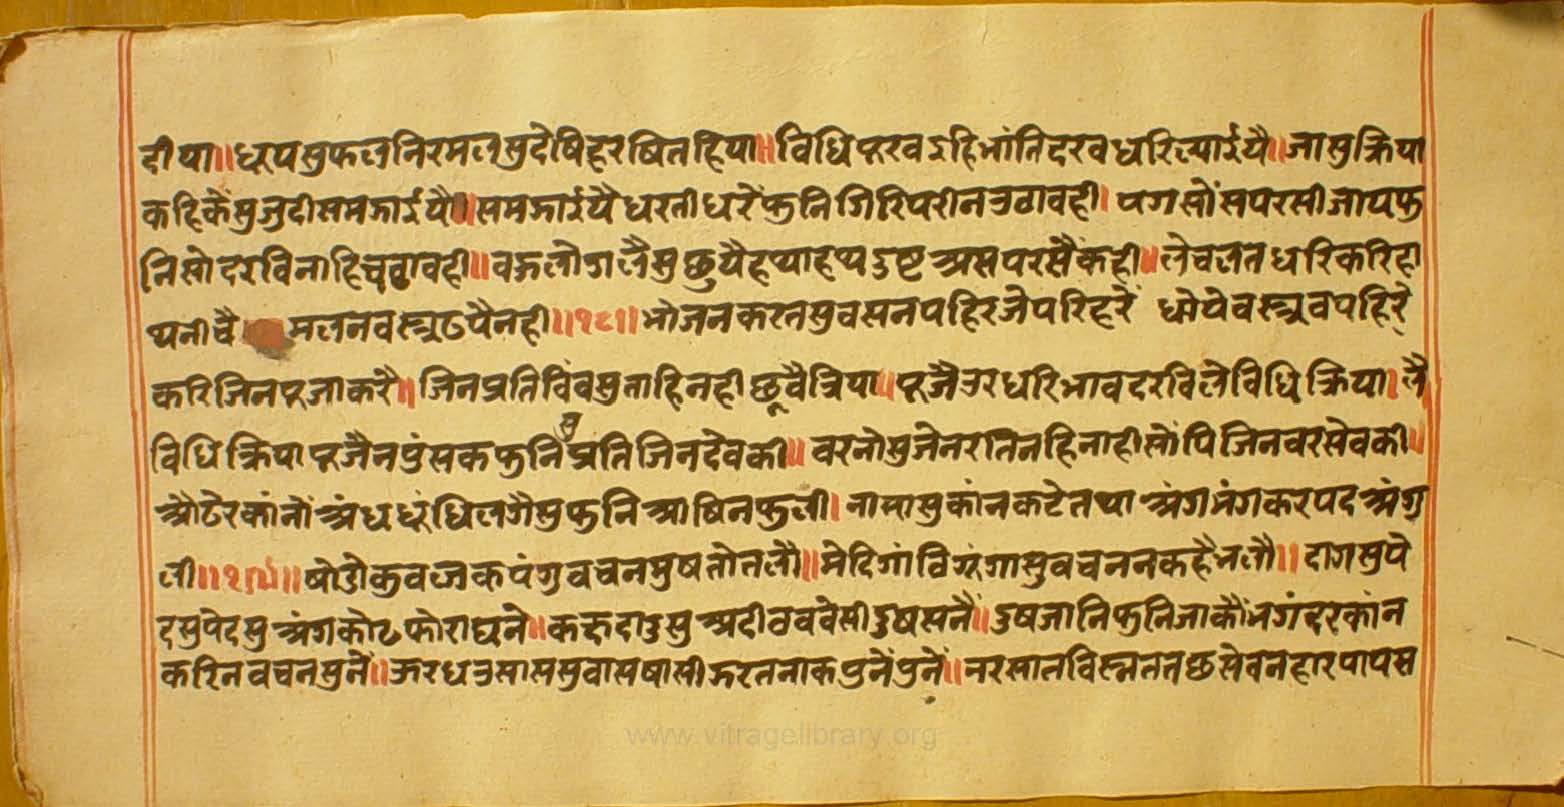 दीया॥धूपसुफलनिरमलसुदेषिहरषितहिया॥विधिपूरवऽहिभांतिदरवधरिल्याईयै॥जासुक्रिया
कहिकेंसुजुदीसमझाईयै॥समझाईयैधरतीधरेंफुनिगिरिपरीनउठावही।पगसोंसपरसीजापफु
निसोदरविनाहिचढावही॥वऊलोगलैसुछुयैहथ्याहथ्यऽष्टअसपरसैंकही॥लेचलतधरिकरिहा
थनीचै मलनवस्त्रढपैनही॥१८॥भोजनकरतसुवसनपहिरजेपरिहरें धोयेवस्त्रवपहिरे
करिजिनपूजाकरै॥जिनप्रतिविंवसुताहिनहीछूवैत्रिया॥पूजैउरधरिभावदरविलेविधिक्रिया।लै
विधिक्रियापूजैनपुंसकफुनिसुप्रतिजिनदेवकी॥वरनोसुजेनरतिनहिनाहीसोंपिजिनवरसेवकी॥
औठेरकांनोंअंधधूंधिलगैसुफुनिआषिनफुली।नासासुकांनकटेतथाअंगभंगकरपदअंगु
ली॥१९॥षोडोकुवज्जकपंगुवचनमुषतोतलौ॥मेदिगांविगूंगासुवचननकहैनलौ॥दागसुपे
दसुपेदसुअंगकोढफोराघने॥कहुदाउसुअदीठववेसीदुषसनैं॥दुषजानिफुनिजाकौंभगंदरकांन
करिनवचनसुनें॥ऊरधउसाससुवासषासीझरतनाकपुनेंपुनें॥नरसातविस्नततछसेवनहारपापस
www.vitragelibrary.org